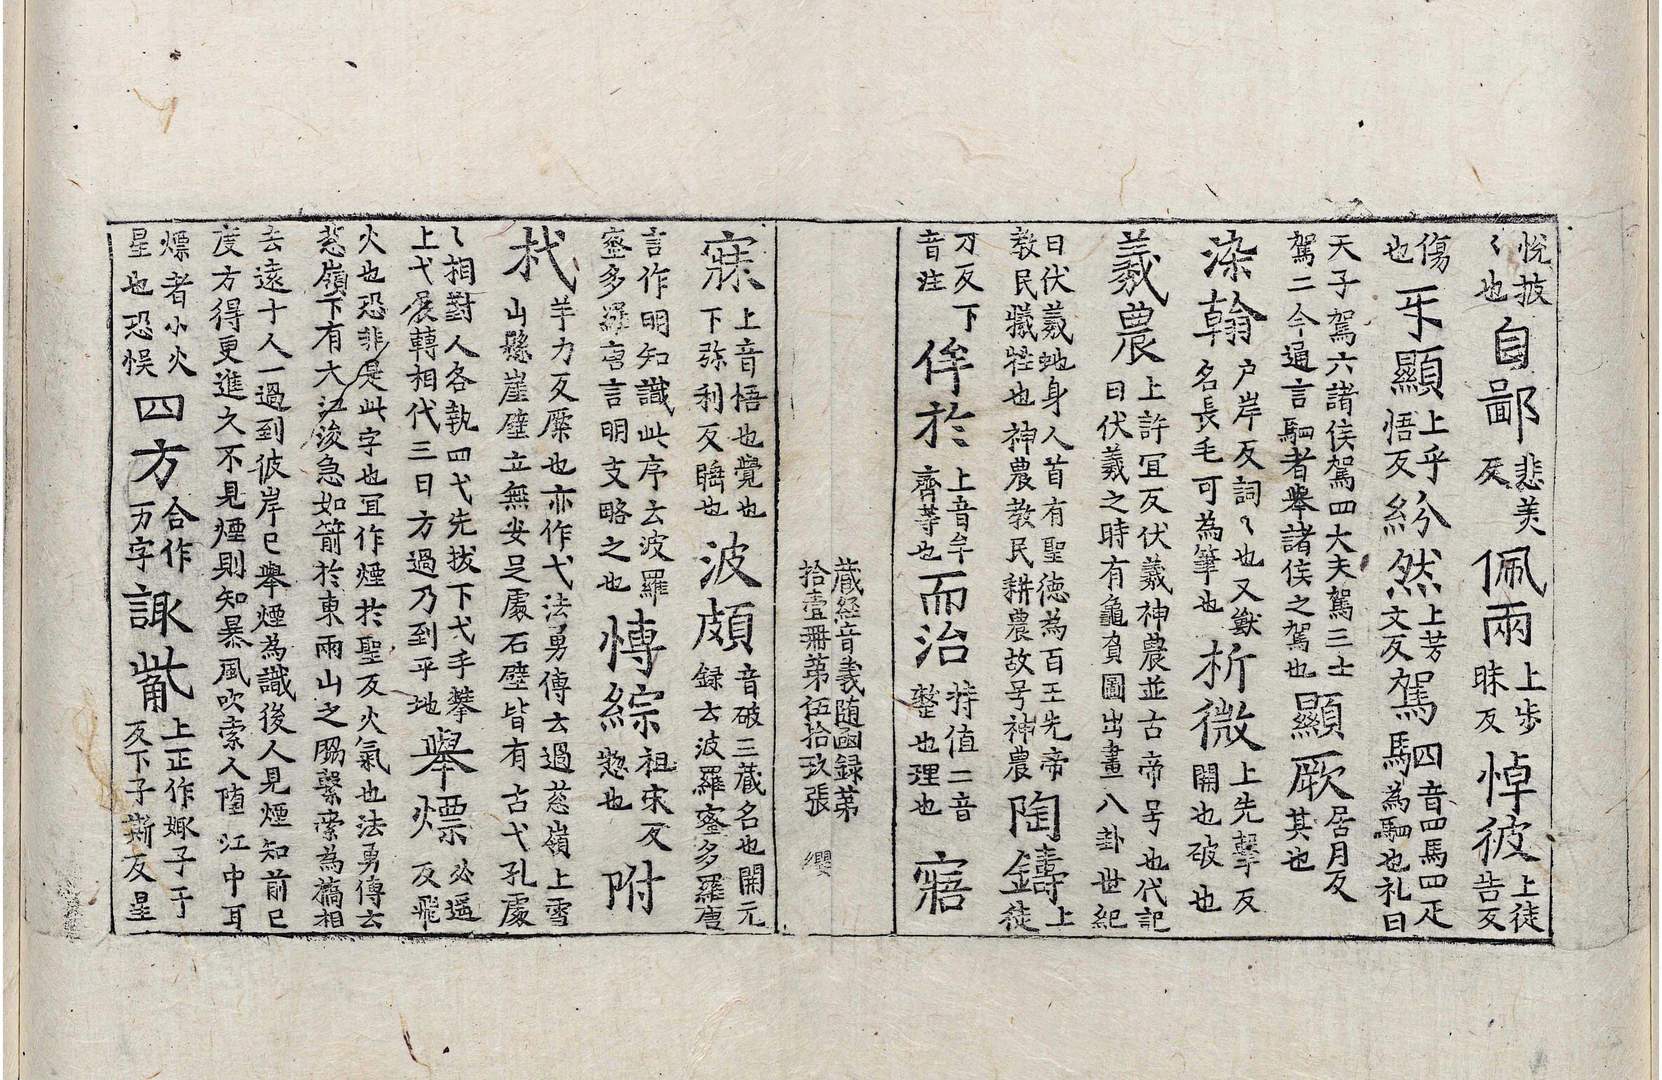 悅披〻也自鄙悲美反佩兩上步昧反悼彼上徒告反
傷也㸦顯上乎悟反紛然上芳文反駕駟音四馬四疋為駟也礼曰
天子駕六諸侯駕四大夫駕三士駕二今通言駟者舉諸侯之駕也顯厥居月反其也
染翰户岸反詞〻也又獣名長毛可為筆也析微上先擊反開也破也
羲農上許冝反伏羲神農並古帝号也代記曰伏羲之時有龜負圖出畫八卦世紀
曰伏羲虵身人首有聖德為百王先帝教民犧牲也神農教民耕農故号神農陶鑄上徒
刀反下音注侔於上音牟齊等也而治持值二音整也理也寤
藏經音義随函録弟拾壹冊第伍拾玖張 纓
寐上音悟也覺也下弥利反睡也波頗音破三藏名也開元録云波羅蜜多羅唐
言作明知識此序云波羅蜜多羅唐言明支略之也慱綜祖宋反惣也附
杙羊力反橜也亦作弋法勇傳云過葱嶺上雪山懸崖壁立無安足處石壁皆有古弋孔處
〻相對人各執四弋先拔下弋手攀上弋展轉相代三日方過乃到平地舉熛必遥反飛
火也恐非是此字也冝作煙於聖反火氣也法勇傳云葱嶺下有大江浚急如箭於東兩山之脇繫索為橋相
去遠十人一過到彼岸已舉煙為識後人見煙知前已度方得更進久不見煙則知暴風吹索人墮江中耳
熛者小火星也恐悮四方合作万字諏觜上正作娵子于反下子斯反星